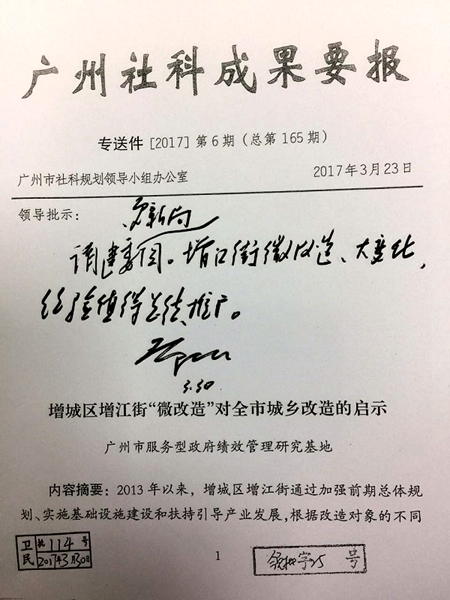 广州社科成果要报
专送件 [2017] 第6期 (总第165期)
广州市社科规划领导小组办公室 2017年3月23日
领导批示:
请建委阅。增江街微改造、大变化,
经验值得总结推广。
3.30
增城区增江街“微改造”对全市城乡改造的启示
广州市服务型政府绩效管理研究基地
内容摘要: 2013年以来, 增城区增江街通过加强前期总体规
划、实施基础设施建设和扶持引导产业发展, 根据改造对象的不同
114号
2017年3月30日
1
号